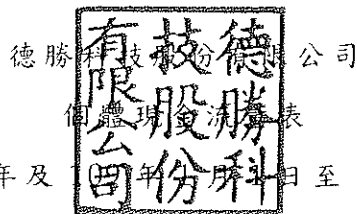 德勝科技股份有限公司
個體現金流量表
年及10年月日至
德勝科
技股份
有限公司